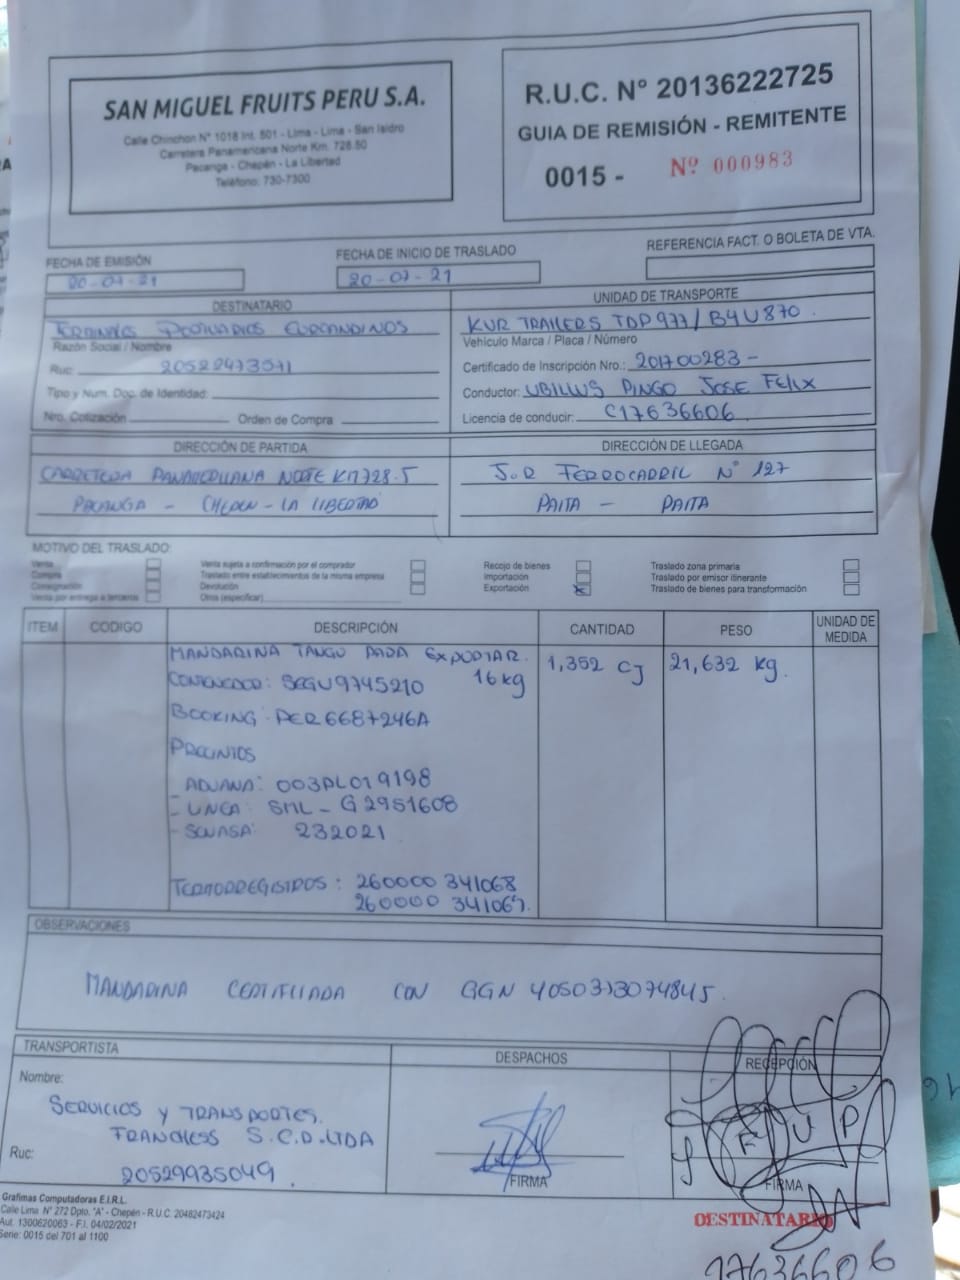 SAN MIGUEL FRUITS PERU S.A.
Calle Chinchon N° 1018 Int. 501 - Lima - Lima - San Isidro
Carretera Panamericana Norte Km. 728.50
Pacanga - Chepén - La Libertad
Teléfono: 730-7300
R.U.C. N° 20136222725
GUIA DE REMISIÓN - REMITENTE
0015 - Nº 000983
FECHA DE EMISIÓN
20-07-21
FECHA DE INICIO DE TRASLADO
20-07-21
REFERENCIA FACT. O BOLETA DE VTA.
DESTINATARIO
TERMINALES PORTUARIOS EUROANDINOS
Razón Social / Nombre
Ruc: 20522473571
Tipo y Num. Doc. de Identidad:
Nro. Cotización Orden de Compra
UNIDAD DE TRANSPORTE
KUR TRAILERS TDP977/B4U870
Vehículo Marca / Placa / Número
Certificado de Inscripción Nro.: 201700283-
Conductor: UBILLUS PINGO JOSE FELIX
Licencia de conducir: C17636606
DIRECCIÓN DE PARTIDA
CARRETERA PANAMERICANA NORTE KM728.5
PACANGA - CHEPEN - LA LIBERTAD
DIRECCIÓN DE LLEGADA
J.R FERROCARRIL N° 127
PAITA - PAITA
MOTIVO DEL TRASLADO:
Venta
Compra
Consignación
Venta por entrega a terceros
Venta sujeta a confirmación por el comprador
Traslado entre establecimientos de la misma empresa
Devolución
Otros (especificar)
Recojo de bienes
Importación
Exportación X
Traslado zona primaria
Traslado por emisor itinerante
Traslado de bienes para transformación
ITEM CODIGO DESCRIPCIÓN CANTIDAD PESO UNIDAD DE MEDIDA
MANDARINA TANGO PARA EXPORTAR. 1,352 CJ 21,632 kg.
CONTENEDOR: SEGU9745210 16kg
BOOKING: PER6687246A
PRECINTOS
- ADUANA: 003PL019198
- LINEA: SML-G2951608
- SENASA: 232021
TERMORREGISTROS: 260000 341068
260000 341067.
OBSERVACIONES
MANDARINA CERTIFICADA CON GGN 4050373074845.
TRANSPORTISTA
Nombre:
SERVICIOS Y TRANSPORTES.
FRANCHESS S.C.R.LTDA
Ruc:
20529935049.
DESPACHOS
FIRMA
RECEPCIÓN
J F U P
FIRMA
DESTINATARIO
17636606
Grafimas Computadoras E.I.R.L.
Calle Lima N° 272 Dpto. "A" - Chepén - R.U.C. 20482473424
Aut. 1300620063 - F.I. 04/02/2021
Serie: 0015 del 701 al 1100